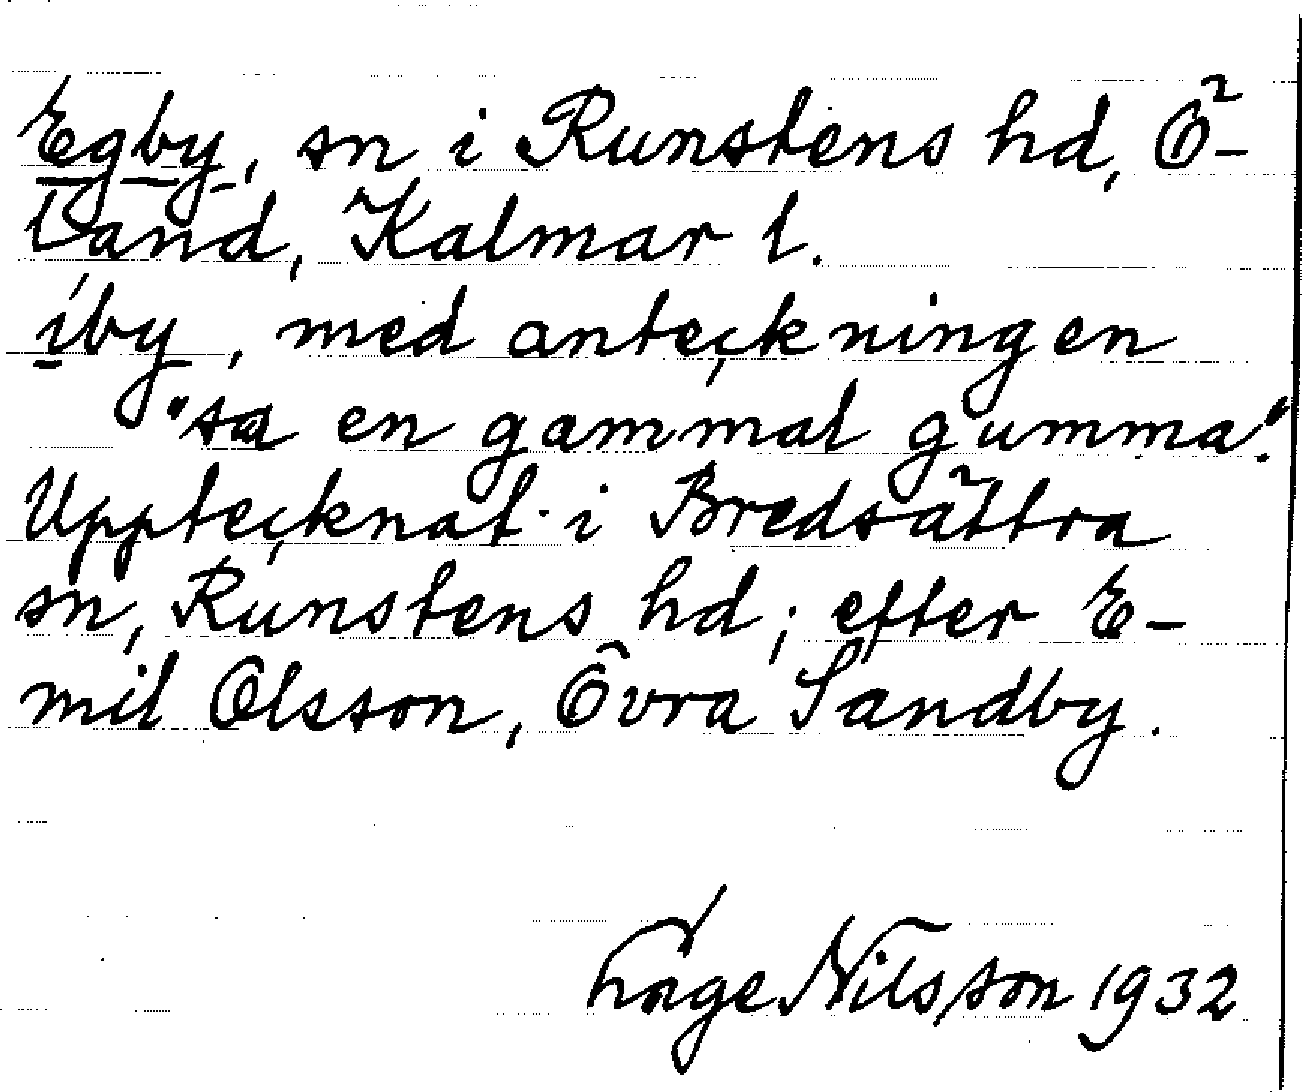 Egby, sn i Runstens hd, Ö-
land, Kalmar l.
íby, med anteckningen
"sa en gammal gumma".
Upptecknat i Bredsättra
sn, Runstens hd; efter E-
mil Olsson, Övra Sandby.
Nilsson 1932